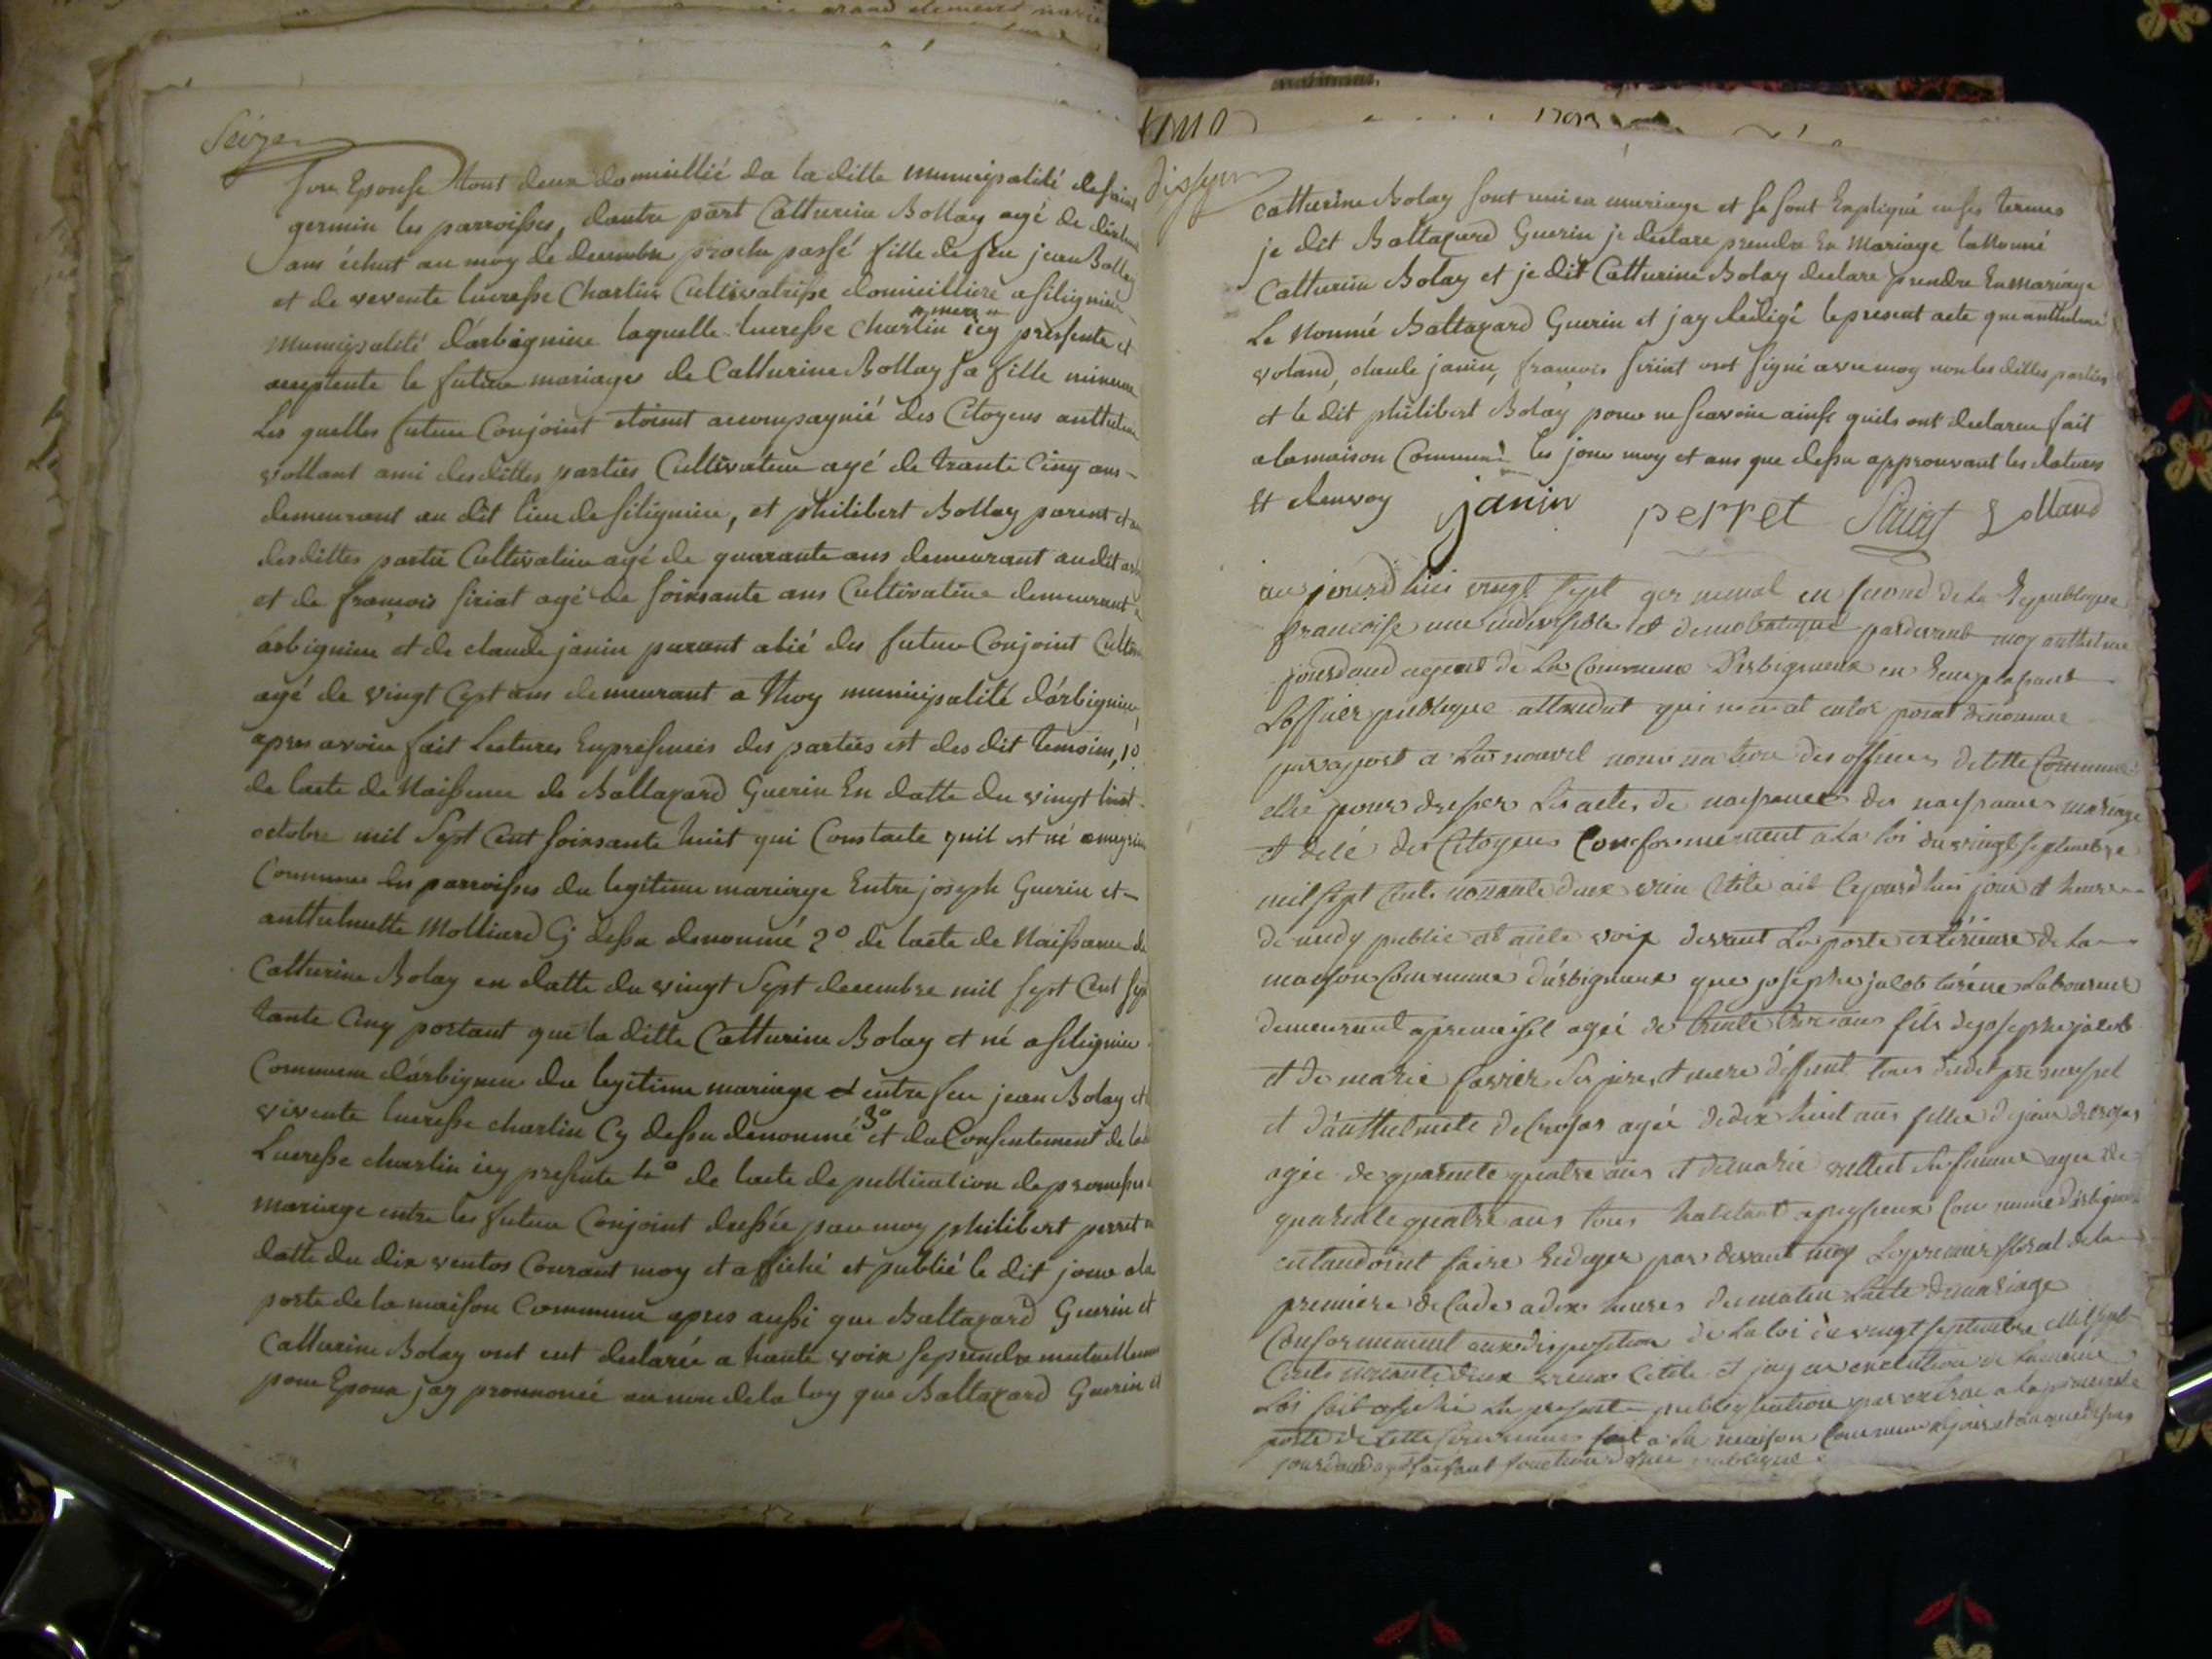 Seize
son Epouse tout deux domicillié de la ditte municipalité de saint
germin les parroisses, dautre part Catturine Bollay agé de dixhuit
ans échut au moy de decembre proche passé fille de feu jean Bollay
et de vevente lucresse Charlin Cultivatrisse domicilliere a silignieu
Municipalité d'arbignieu laquelle lucresse charlin icy presente et
a mere
acceptente le future mariages de Catturine Bollay sa fille mineure
Les quelles future Conjoint etoient accompagnié des Citoyens anttulme
vollant ami desdittes parties Cultivateur agé de trante Cinq ans
demeurant au dit lieu de silignieu, et philibert Bollay parent et
desdittes partie Cultivateur agé de quarante ans demeurant audit
et de françois siriat agé de soixsante ans Cultivateur demeurant
arbignieu et de claude janin parant alié des future Conjoint
agé de vingt Cept ans demeurant a thoy municipalité d'arbignieu
apres avoire fait Lectures Enpresences des parties est des dit temoins, 1º
de lacte de Naissence de Baltazard Guerin En datte du vingt huit
octobre mil Sept Cent soixsante huit qui Constacte quil est né
Commune les parroisses du legitime mariage Entre joseph Guerin et
anttelmette Molliard Cy dessu denommé 2º de lacte de Naissance de
Catturine Bolay en datte du vingt Sept decembre mil sept Cent
tante Cinq portant que la ditte Catturine Bolay et né a silignieu
Commune d'arbignieu du legitime mariage et entre feu jean Bolay et
vivente lucresse charlin Cy dessu denommé 3º et du Consentement de
Lucresse charlin icy presente 4º de lacte de publication de promesses
mariage entre les future Conjoint dressée par moy philibert perret
datte du dix ventos Courant moy et affiché et publié le dit jour ala
porte de la maison Commune apres aussi que Baltazard Guerin et
Catturine Bolay ont eut declarée a haute voix seprendre mutuellement
pour Epoux jay pronnoncée au nom de la loy que Baltazard Guerin et
Catturine Bolay sont uni en mariage et se sont Expliqué en ses termes
je dit Baltazard Guerin je declare prendre En Mariage la Nommé
Catturine Bolay et je dit Catturine Bolay declare prendre En mariage
Le Nommé Baltazard Guerin et jay Redigé le present acte que anttulme
voland, claude janin, françois siriat ont signé avec moy non les dittes parties
et le dit philibert Bolay pour ne scavoire ainsi quils ont declaree fait
a la maison Commune les jour moy et ans que dessu approuvant les ratures
Et Renvoy janin perret Siriat Volland
aujourdhui vingt sept germinal en second de la Republique
francoise une indivisible et democratique pardevant moy anthelme
jourdaud agent de la Commune Darbignieux en remplassant
Loffisier publique attendut qui non at encor point denomme
par rapost a la nouvel nomination des officiers de cette Commune
elut pour dresser les actes de naissance des naissances mariage
et décé des Citoyens Conformement a la loi du vingt septembre
mil sept Cents nonante deux ait Cejourdhui jour et heure
de midy publié et voix devant la porte exterieure de la
maison Commune d'arbignieux que josephe jacob Laboureur
demeurant a premeisel agée de trente trois ans fils de josephe jacob
et de marie favier ses pere et mere deffunt tous dudit premeisel
et d'anthelmete decrosas agée de dix huit ans fille de jean decrosas
agée de quarente quatre ans et de marie sa femme agée de
quarente quatre ans tous habitant a peyzieux Commune darbignieux
entandoint faire rediger par devant moy le premier floreal de la
premiere decade a dix heures du matin lacte de mariage
Conformement aux disposition de la loi du vingt septembre Mil sept
Cents nonante deux vieux stile et jay en execution de la meme
Loi fait afiché la presente publication par a la principale
porte de cette Commune fait a la maison Commune
jourdaud agent faisant fonction dofisier publique